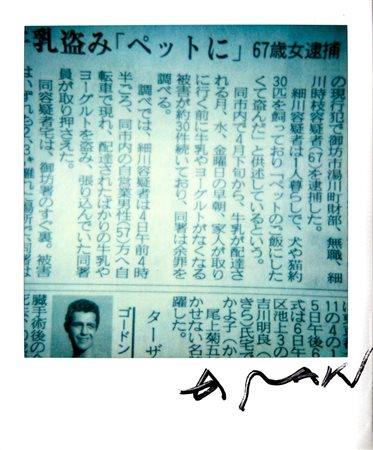 牛乳盗み「ペットに」67歳女逮捕
の現行犯で御坊市湯川町財部、無職、細
川時枝容疑者(67)を逮捕した。
細川容疑者は一人暮らしで、犬や猫約
30匹を飼っており「ペットのご飯にした
くて盗んだ」と供述しているという。
同市内で4月下旬から、牛乳が配達さ
れる月、水、金曜日の早朝、家人が取り
に行く前に牛乳やヨーグルトがなくなる
被害が約30件続いており、同署は余罪を
調べる。
調べでは、細川容疑者は4日午前4時
半ごろ、同市内の自営業男性(57)方へ自
転車で現れ、配達されたばかりの牛乳や
ヨーグルトを盗み、張り込んでいた同署
員が取り押さえた。
同容疑者宅は、御坊署のすぐ裏。被害
はいずれも
11の4の1
5日午後6
式は6日午
区池上3の
吉川明良(
きら)氏宅で
かよ子(か
尾上菊五
かせない名
躍した。
ターザ
ゴードン
臓手術後の